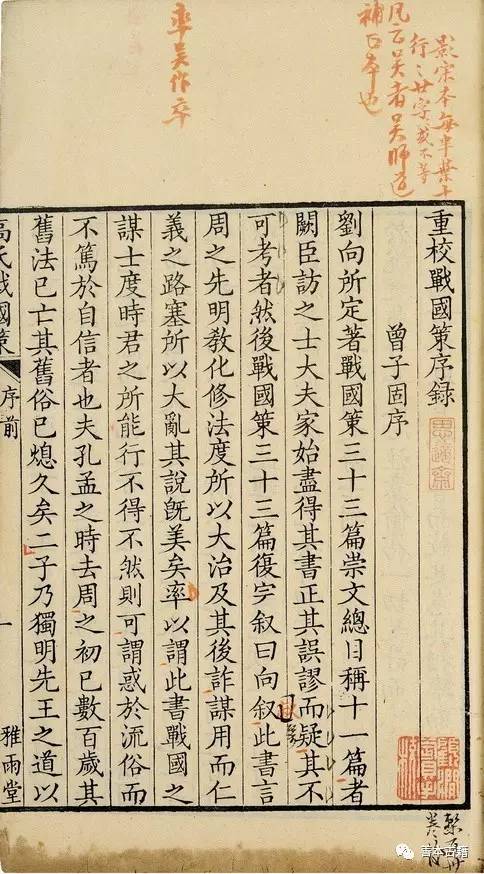 影宋本每半葉十
行〻廿字或不等
凡云吴者吴師道
補正本也
率吴作卒
重校戰國策序錄
思適齋
曾子固序
劉向所定著戰國策三十三篇崇文總目稱十一篇者
闕臣訪之士大夫家始盡得其書正其誤謬而疑其不
可考者然後戰國策三十三篇復完叙曰向叙此書言
周之先明敎化修法度所以大治及其後詐謀用而仁
義之路塞所以大亂其說旣美矣率以謂此書戰國之
謀士度時君之所能行不得不然則可謂惑於流俗而
不篤於自信者也夫孔孟之時去周之初已數百歲其
舊法已亡其舊俗已熄久矣二子乃獨明先王之道以
高氏戰國策
序前
一
雅雨堂
善本古籍